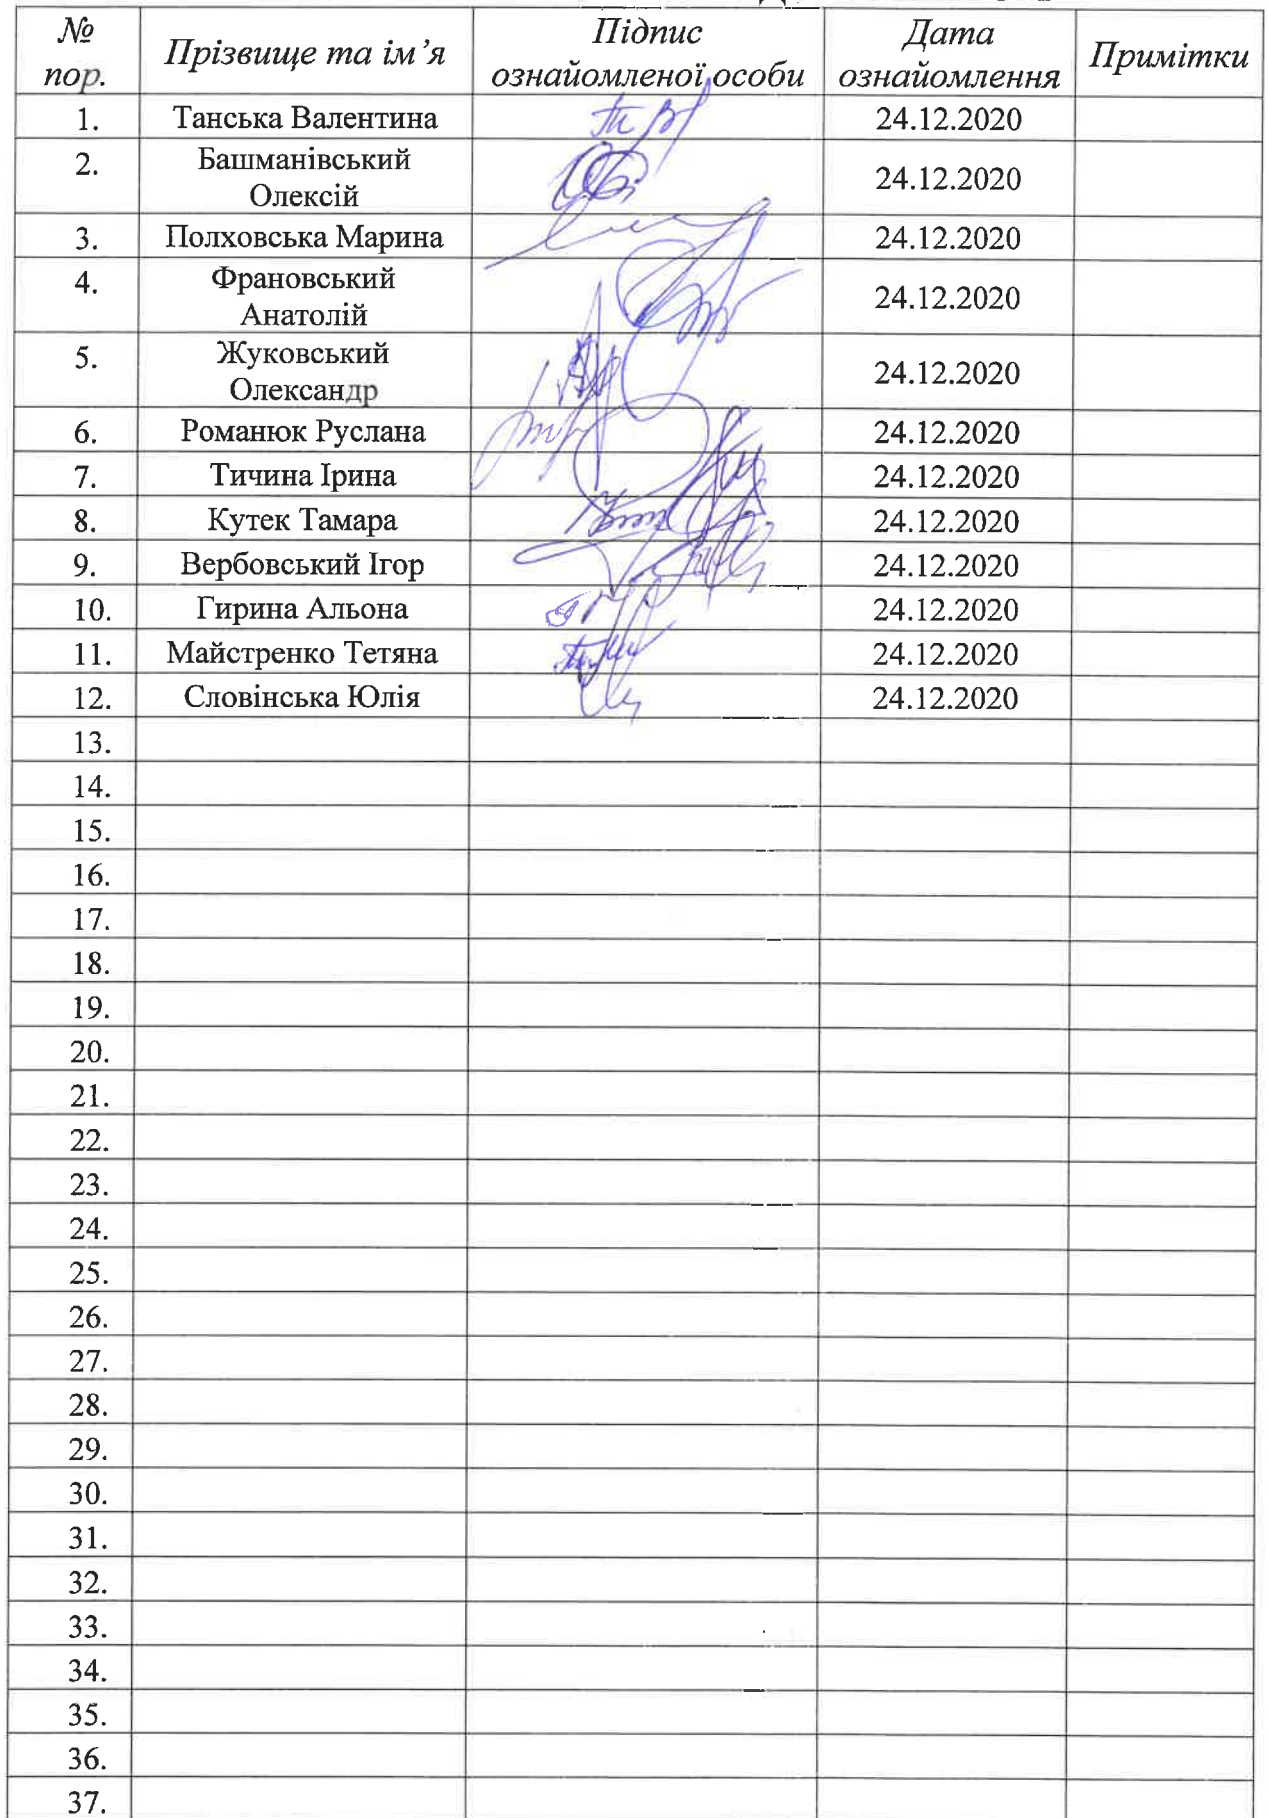 № пор. Прізвище та ім’я Підпис ознайомленої особи Дата ознайомлення Примітки
1. Танська Валентина 24.12.2020
2. Башманівський Олексій 24.12.2020
3. Полховська Марина 24.12.2020
4. Франовський Анатолій 24.12.2020
5. Жуковський Олександр 24.12.2020
6. Романюк Руслана 24.12.2020
7. Тичина Ірина 24.12.2020
8. Кутек Тамара 24.12.2020
9. Вербовський Ігор 24.12.2020
10. Гирина Альона 24.12.2020
11. Майстренко Тетяна 24.12.2020
12. Словінська Юлія 24.12.2020
13.
14.
15.
16.
17.
18.
19.
20.
21.
22.
23.
24.
25.
26.
27.
28.
29.
30.
31.
32.
33.
34.
35.
36.
37.